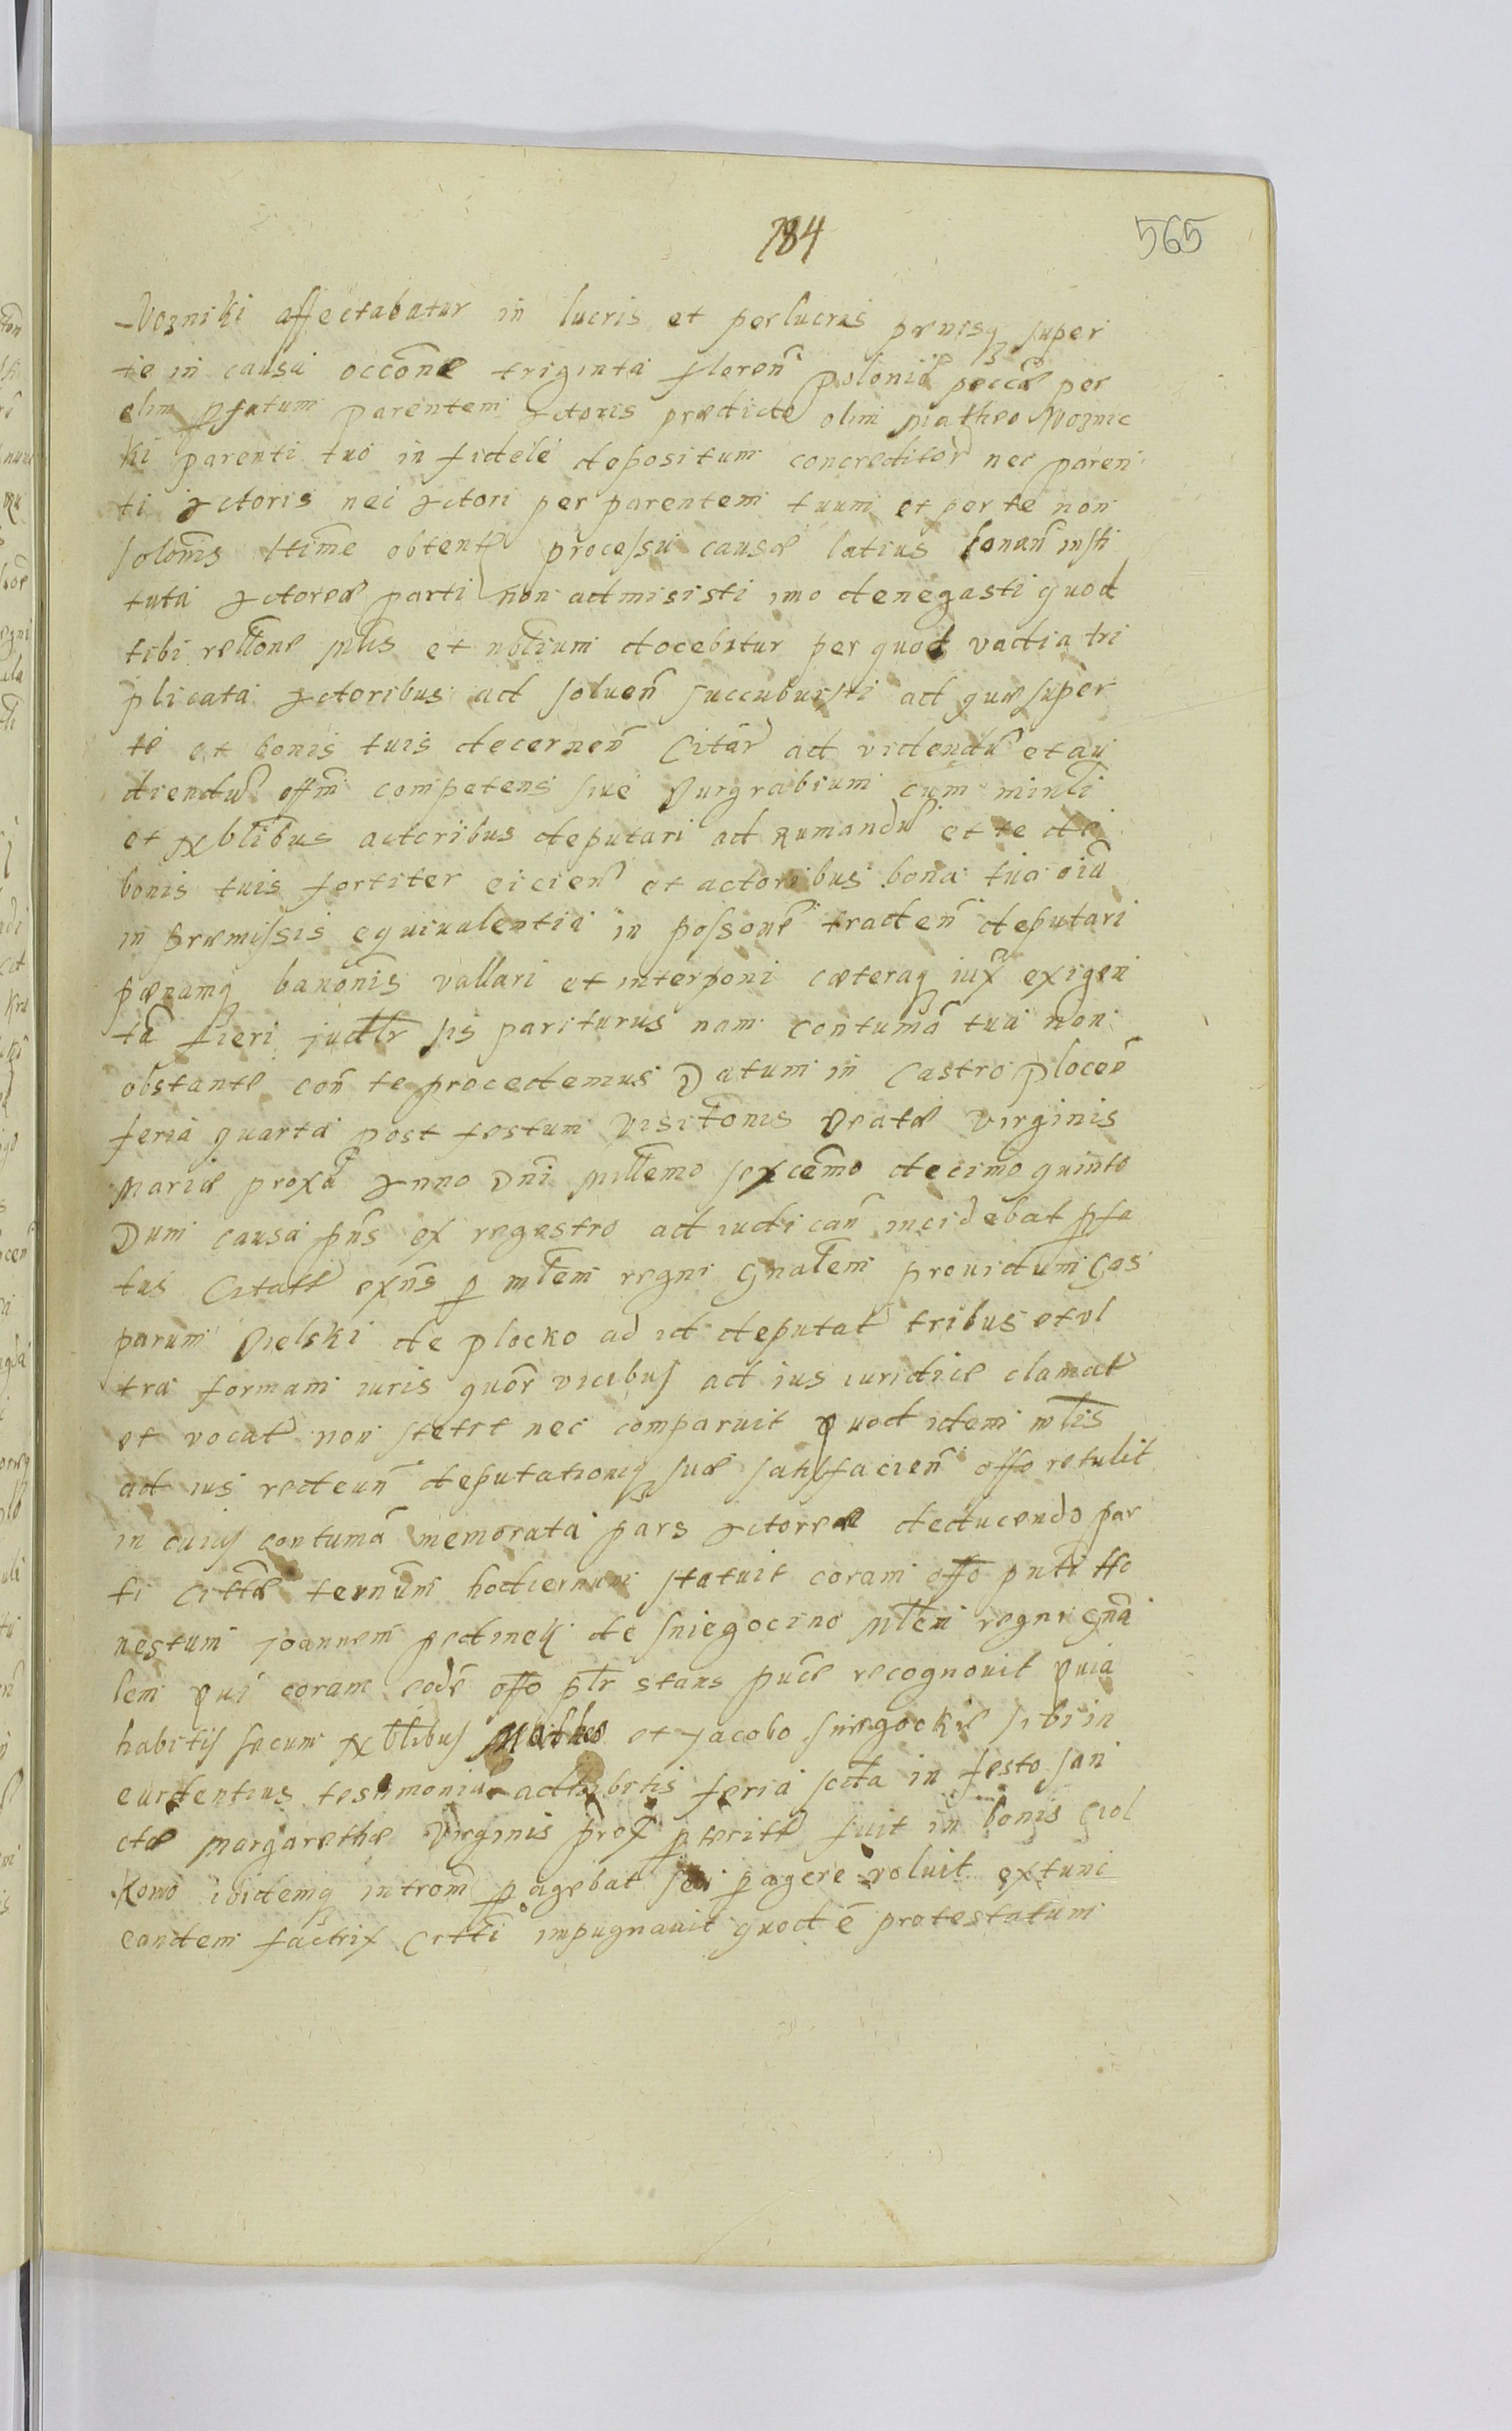 784
565
Wozniki affectabatur in lucris et perlucris pœnisq super
te in causa occōne triginta floreñ poloniē peccē per
olim p̄fatum Parentem Actoris prædictē olim Matheo Woznic
ki parenti tuo in fidele depositum concreditor nec paren
ti Actoris nec Actori per parentem tuum et per te non
solomīs ltime obtent processu causæ latius bonañ insti
tuta Actoreæ parti non admisisti imo denegasti quod
tibi rellōne mlis et nblium docebitur per quod vadia tri
plicata Actoribus ad soluen̄ succubuisti ad quæ super
te et bonis tuis decernen̄ Citar̄ ad videndū et au
diendū offm̄ competens siue Burgrabium cum minlī
et nblibus actoribus deputari ad Rumandū et te de
bonis tuis fortiter eicien̄ et actoribus bona tua oiā
in præmissis equiualentia in possone traden̄ deputari
pœnamq banonis vallari et interponi cæteraq iux̄ exigen
tā fieri judlr sis pariturus nam contumā tua non
obstante con̄ te procedemus Datum in Castro Ploceñ
feria quarta post festum Visitōnis Beatæ Virginis
Mariæ proxā Anno Dn̄i Millemo sexcēmo decimo quinto
Dum causa pn̄s ex regestro ad iudican̄ incidebat p̄fa
tus Citatt exn̄s p mlem regni Gnalem prouidum Gas
parum Bielski de Plocko ad id deputat tribus et vl
tra formam iuris quor̄ vicibus ad ius iuridice clamat
et vocat non stetit nec comparuit Quod idem mlis
ad ius redeun̄ deputationis suæ satisfacien̄ offo retulit
in cuius contumā memorata pars Actorea deducendo par
ti Cittæ termūm hodiernum statuit coram offo pnti Ho
nestum Joannem pedinek de Sniegocino Mlem regni Gna
lem Qui coram eodē offo plr stans puce recognouit Quia
habitis secum nblibus Matheo et Jacobo Sniegockie sibi in
euidentius testimoniū adhibitis feria scda in festo san
ctæ Margarethæ Virginis prox pteritt fuit in bonis Ciol
kowo ibidemq introm̄ pagebat seu pagere voluit extunc
eandem factrix Cttī impugnauit quod ē protestatum